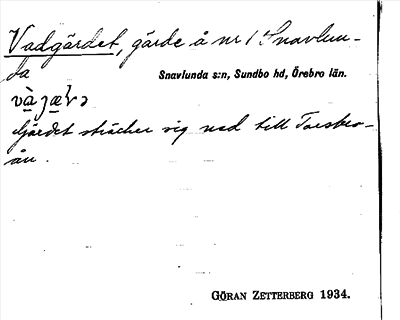 Vadgärdet, gärde å nr 1 Snavlun-
da
Snavlunda s:n, Sundbo hd, Örebro län.
Gärdet sträcker sig ned till
ån.
GÖRAN ZETTERBERG 1934.